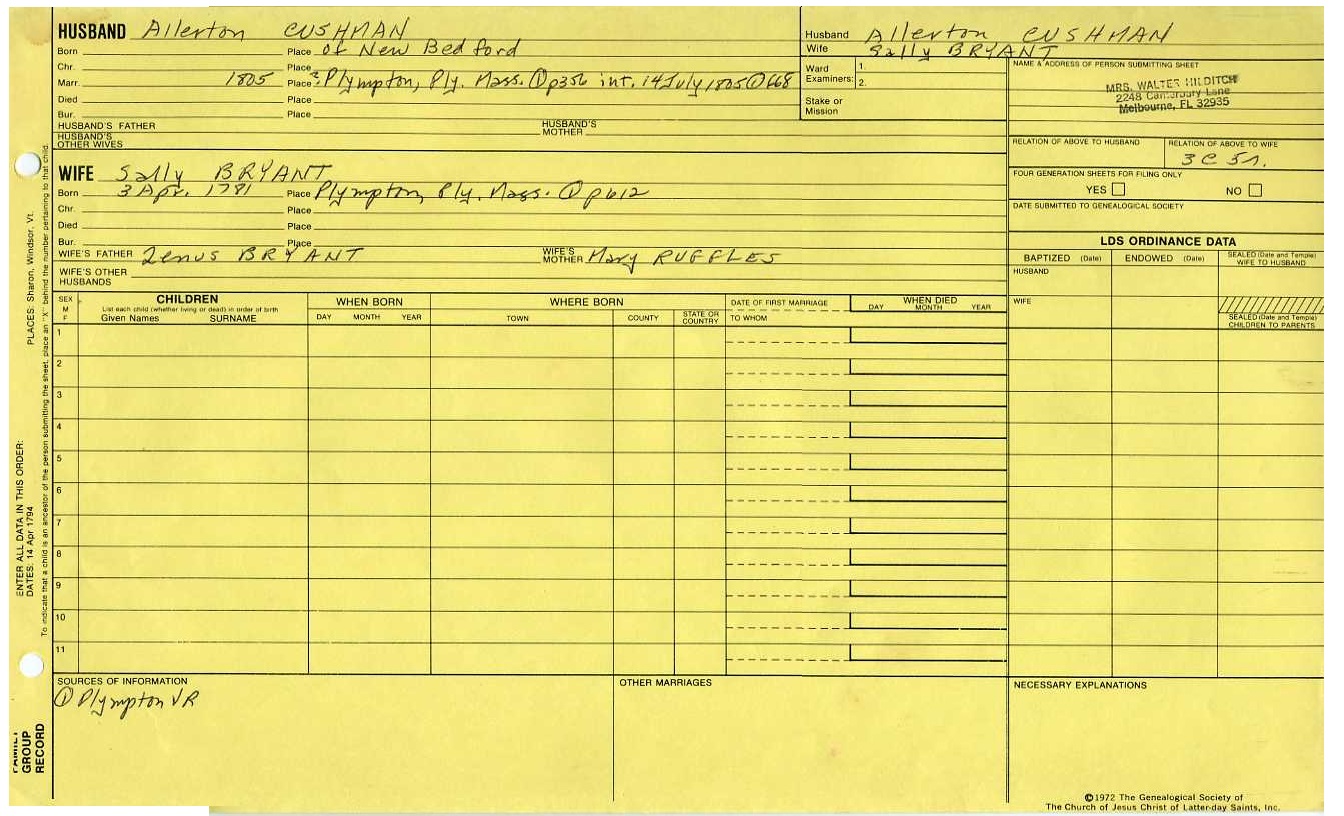 HUSBAND Allerton CUSHMAN
Born Place of New Bedford
Chr. Place
Marr. 1805 Place ? Plympton, Ply. Mass. ① p356 int. 14 July 1805 ①
Died Place
Bur. Place
HUSBAND'S FATHER HUSBAND'S MOTHER
HUSBAND'S OTHER WIVES
Husband Allerton CUSHMAN
Wife Sally BRYANT
Ward Examiners: 1.
2.
Stake or Mission
NAME & ADDRESS OF PERSON SUBMITTING SHEET
MRS. WALTER HILDITCH
2248 Canterbury Lane
Melbourne, FL 32935
RELATION OF ABOVE TO HUSBAND RELATION OF ABOVE TO WIFE
3C 5r.
FOUR GENERATION SHEETS FOR FILING ONLY
YES NO
DATE SUBMITTED TO GENEALOGICAL SOCIETY
WIFE Sally BRYANT
Born 3 Apr. 1781 Place Plympton, Ply. Mass. ① p612
Chr. Place
Died Place
Bur. Place
WIFE'S FATHER Zenus BRYANT WIFE'S MOTHER Mary RUFFLES
WIFE'S OTHER HUSBANDS
LDS ORDINANCE DATA
BAPTIZED (Date) ENDOWED (Date) SEALED (Date and Temple) WIFE TO HUSBAND
HUSBAND
WIFE
SEALED (Date and Temple) CHILDREN TO PARENTS
SEX M F CHILDREN WHEN BORN WHERE BORN DATE OF FIRST MARRIAGE WHEN DIED
List each child (whether living or dead) in order of birth
Given Names SURNAME DAY MONTH YEAR TOWN COUNTY STATE OR COUNTRY TO WHOM DAY MONTH YEAR
1
2
3
4
5
6
7
8
9
10
11
SOURCES OF INFORMATION
① Plympton VR
OTHER MARRIAGES
NECESSARY EXPLANATIONS
©1972 The Genealogical Society of
The Church of Jesus Christ of Latter-day Saints, Inc.
ENTER ALL DATA IN THIS ORDER:
DATES: 14 Apr 1794 PLACES: Sharon, Windsor, Vt.
To indicate that a child is an ancestor of the person submitting the sheet, place an "X" behind the number pertaining to that child.
FAMILY GROUP RECORD